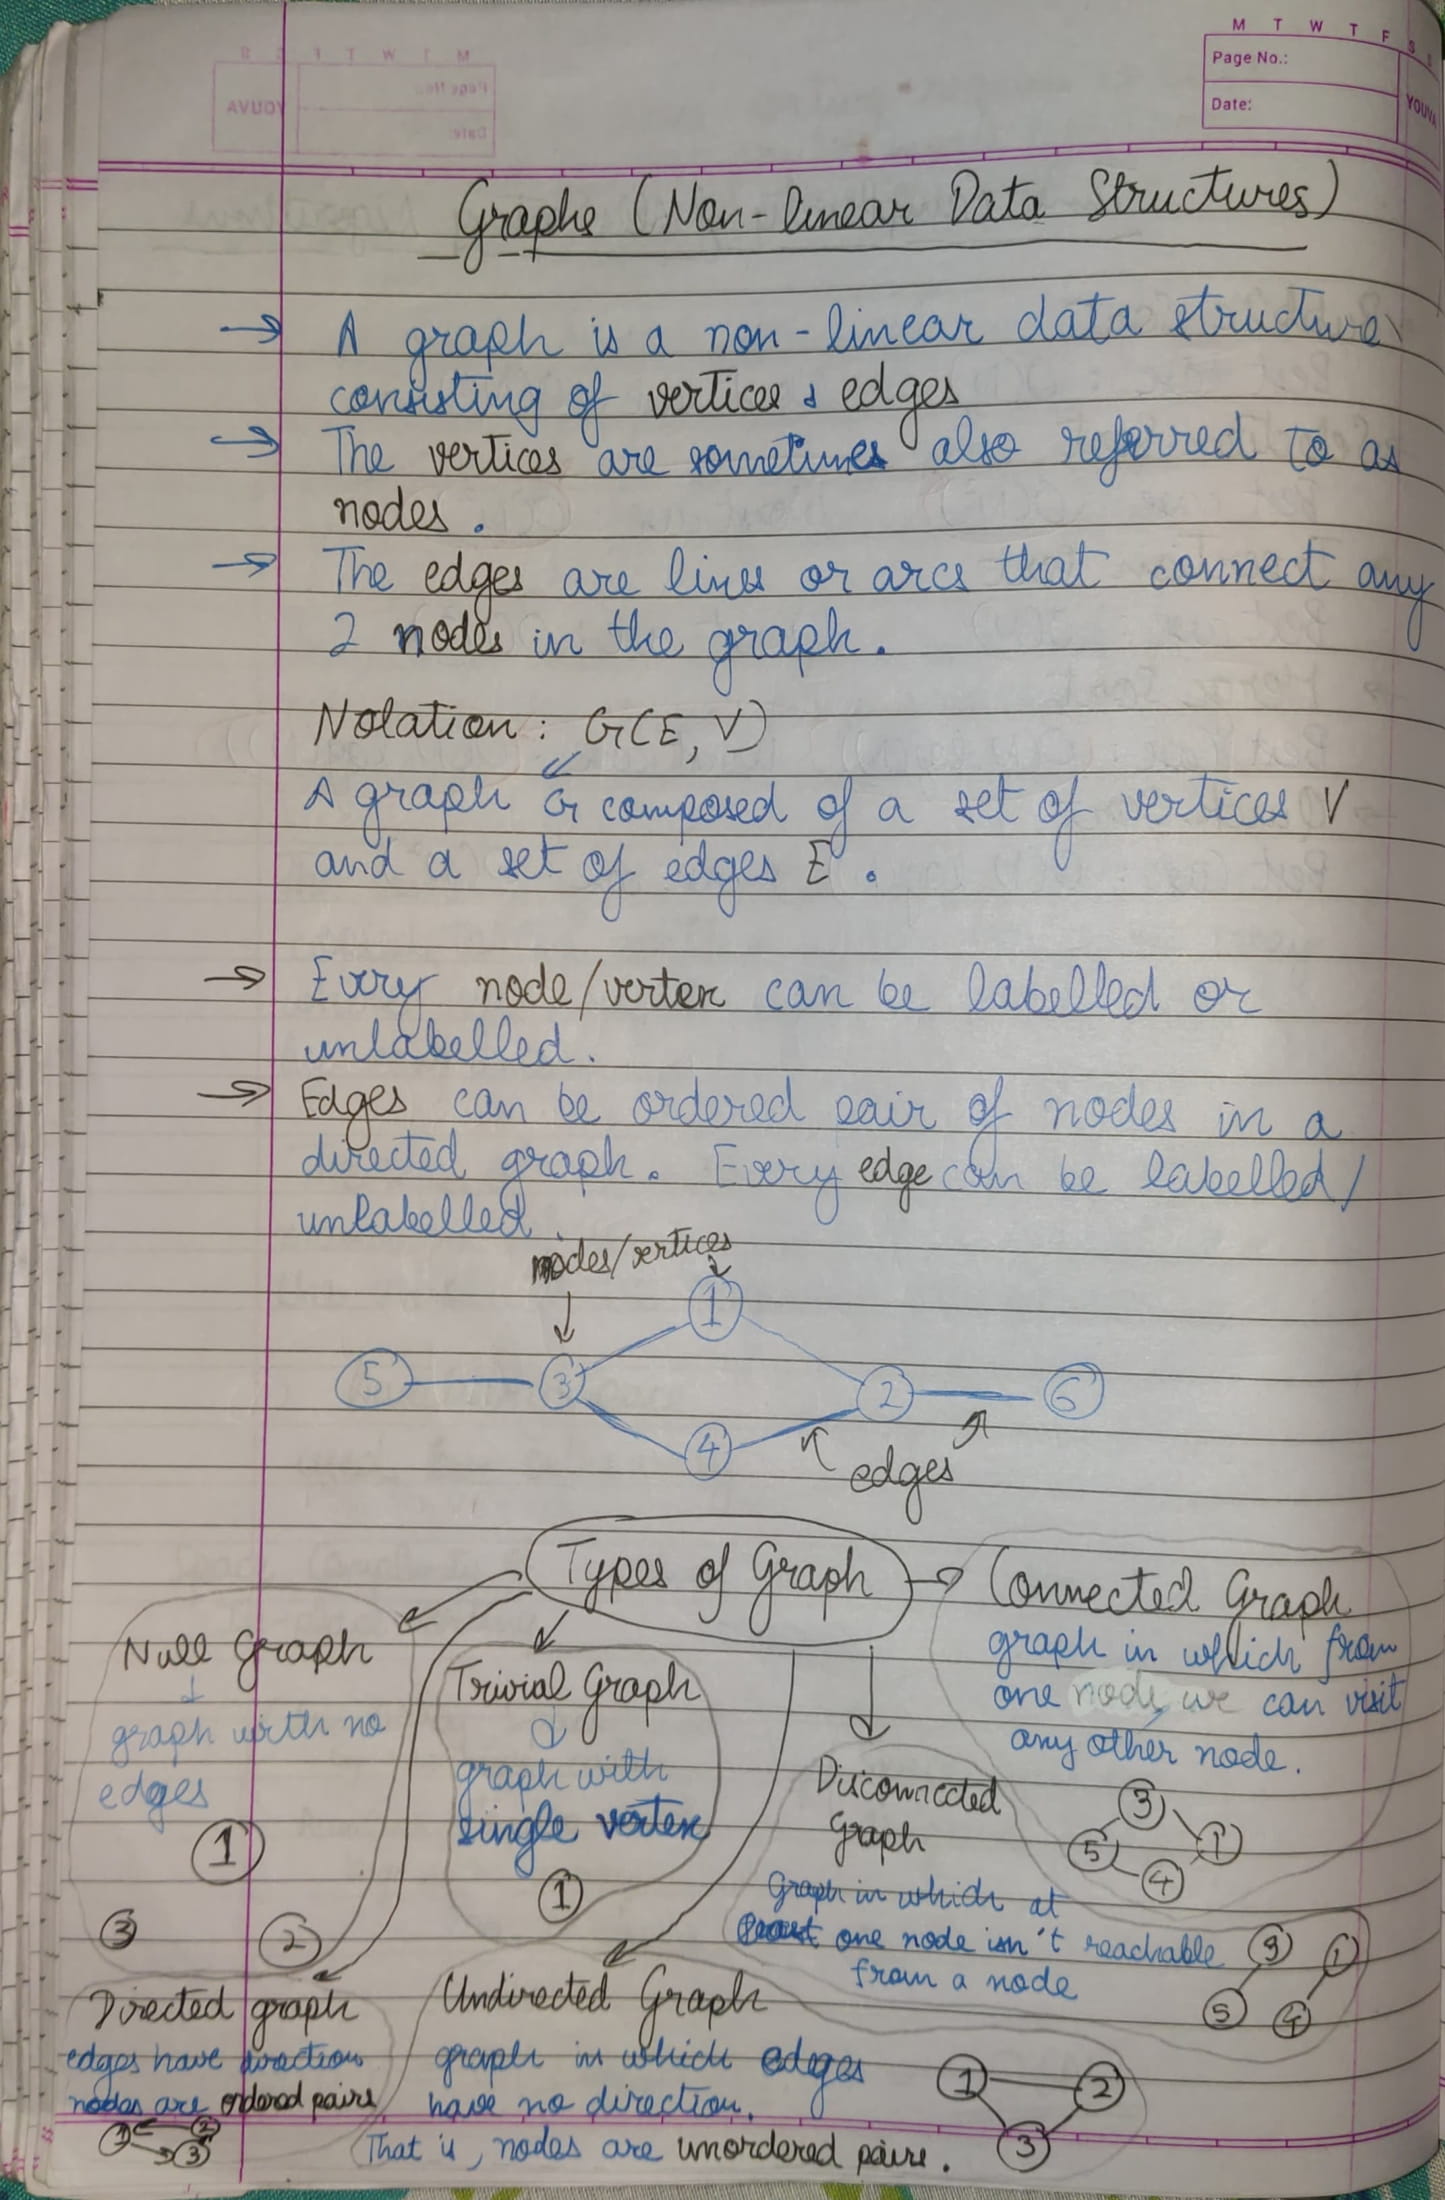 M T W T F S S
Page No.:
Date:
YOUVA
Graphs (Non-linear Data Structures)
→ A graph is a non-linear data structure
consisting of vertices & edges
→ The vertices are sometimes also referred to as
nodes.
→ The edges are lines or arcs that connect any
2 nodes in the graph.
Notation: G(E, V)
A graph G composed of a set of vertices V
and a set of edges E.
→ Every node/vertex can be labelled or
unlabelled.
→ Edges can be ordered pair of nodes in a
directed graph. Every edge can be labelled/
unlabelled.
nodes/vertices
1
5 3 2 6
4
edges
Types of Graph
Null Graph
graph with no
edges
1
3 2
Trivial Graph
graph with
single vertex
1
Connected Graph
graph in which from
one node we can visit
any other node.
3
5 1
4
Disconnected
Graph
Graph in which at
least one node isn't reachable
from a node
3 1
5 4
Directed graph
edges have direction
nodes are ordered pairs
1 2
3
Undirected Graph
graph in which edges
have no direction.
That is, nodes are unordered pairs.
1 2
3